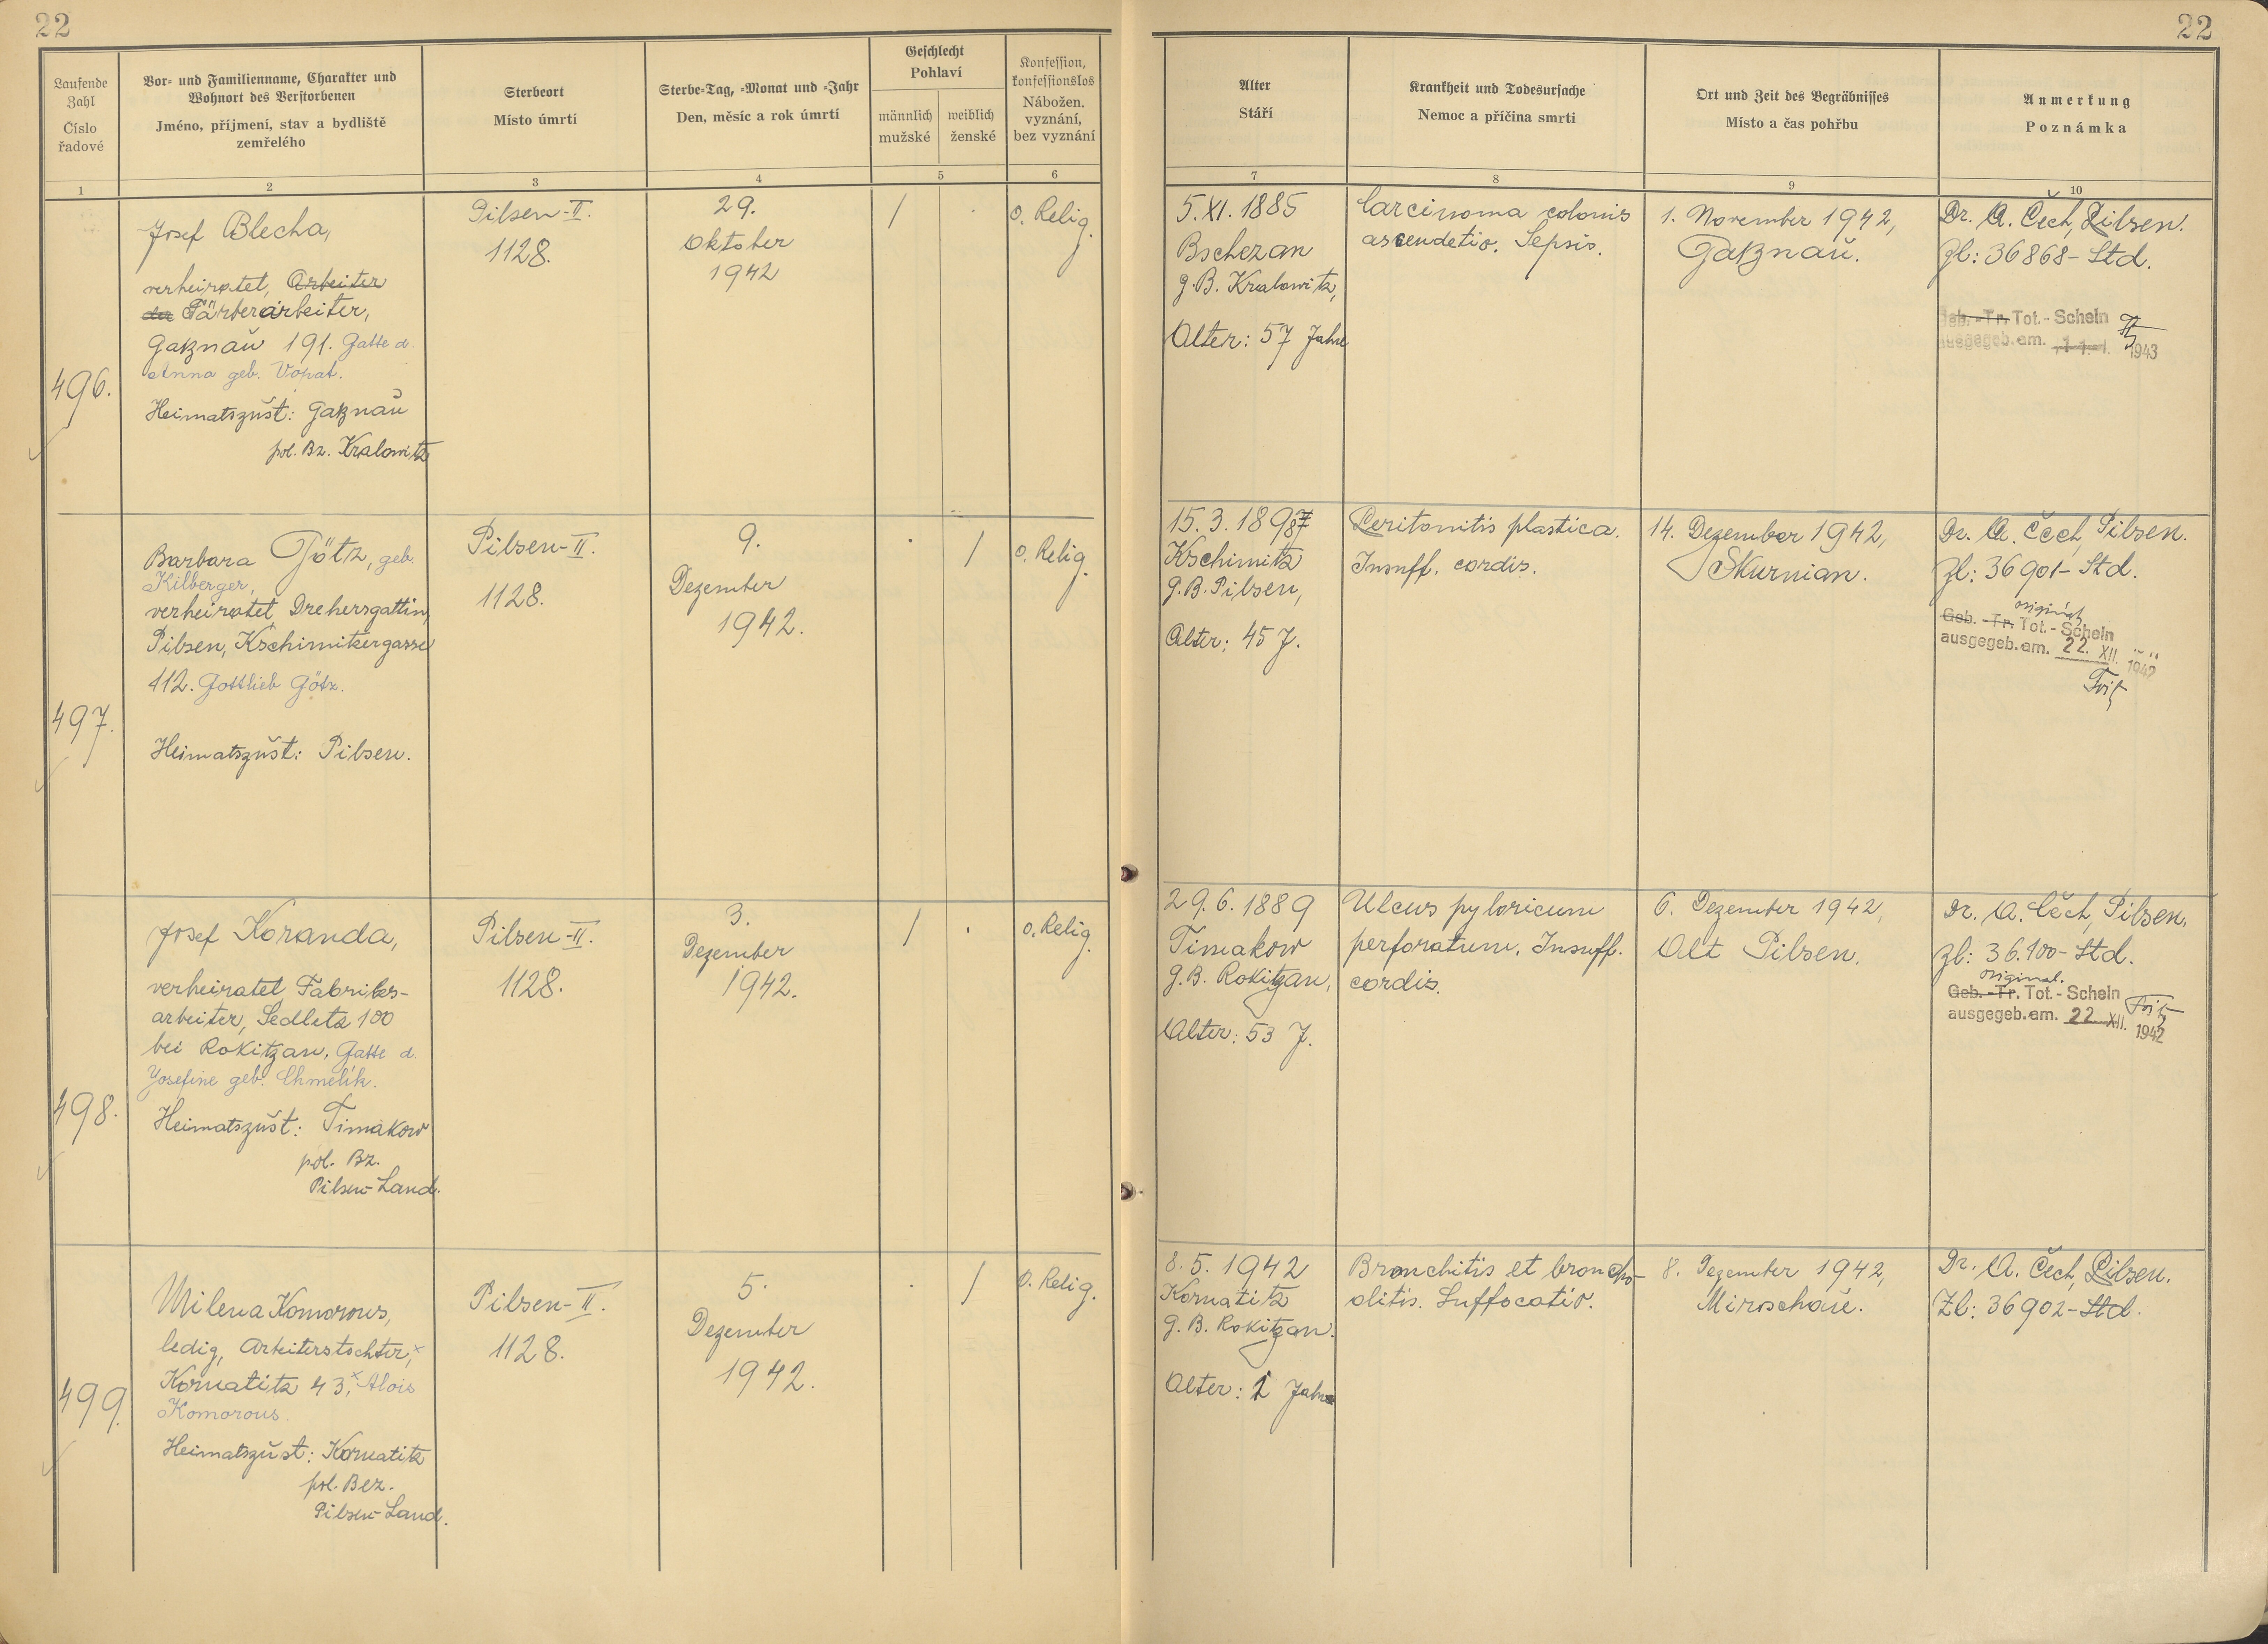 22
22
Laufende
Zahl
Číslo
řadové
Vor- und Familienname, Charakter und
Wohnort des Verstorbenen
Jméno, příjmení, stav a bydliště
zemřelého
Sterbeort
Místo úmrtí
Sterbe-Tag, -Monat und -Jahr
Den, měsíc a rok úmrtí
Geschlecht
Pohlaví
männlich
mužské
weiblich
ženské
Konfession,
konfessionslos
Nábožen.
vyznání,
bez vyznání
Alter
Stáří
Krankheit und Todesursache
Nemoc a příčina smrti
Ort und Zeit des Begräbnisses
Místo a čas pohřbu
Anmerkung
Poznámka
1
2
3
4
5
6
7
8
9
10
496.
Josef Blecha,
verheiratet, Arbeiter
Färberarbeiter,
Gaznau 191. Gatte d.
Anna geb. Vopat.
Heimatszust: Gaznau
pol. Bz. Kralowitz
Pilsen-II.
1128.
29.
Oktober
1942
/
o. Relig.
5. XI. 1885
Bschezan
g. B. Kralowitz,
Alter: 57 Jahre
Carcinoma colonis
ascendetio. Sepsis.
1. November 1942,
Gaznau.
Dr. A. Čech, Pilsen.
Zl: 36868- Std.
Geb. -Tr. Tot.- Schein
ausgegeb. am. 1943
497.
Barbara Götz, geb.
Kilberger,
verheiratet, Drehersgattin,
Pilsen, Kschimitzergasse
112. Gottlieb Götz.
Heimatszust: Pilsen.
Pilsen-II.
1128.
9.
Dezember
1942.
/
o. Relig.
15. 3. 1897
Kschimitz
g. B. Pilsen,
Alter: 45 J.
Peritonitis plastica.
Insuff. cordis.
14. Dezember 1942,
Skurnian.
Dr. A. Čech, Pilsen.
Zl: 36901- Std.
original.
Geb. -Tr. Tot.- Schein
ausgegeb. am. 22. XII. 1942
498.
Josef Koranda,
verheiratet Fabriks-
arbeiter, Sedletz 100
bei Rokitzan, Gatte d.
Josefine geb. Chmelík.
Heimatszust: Timakow
pol. Bz.
Pilsen-Land.
Pilsen-II.
1128.
3.
Dezember
1942.
/
o. Relig.
29. 6. 1889
Timakow
g. B. Rokitzan,
Alter: 53 J.
Ulcus pyloricum
perforatum. Insuff.
cordis.
6. Dezember 1942,
Alt Pilsen.
Dr. A. Čech, Pilsen,
Zl: 36.100- Std.
original.
Geb. -Tr. Tot.- Schein
ausgegeb. am. 22 XII. 1942
499.
Milena Komorous,
ledig, Arbeiterstochter,
Kornatitz 43, Alois
Komorous.
Heimatszust: Kornatitz
pol. Bez.
Pilsen-Land.
Pilsen-II.
1128.
5.
Dezember
1942.
/
o. Relig.
8. 5. 1942
Kornatitz
g. B. Rokitzan.
Alter: Jahre
Bronchitis et broncho-
olitis. Suffocatio.
8. Dezember 1942,
Miroschau.
Dr. A. Čech, Pilsen.
Zl: 36902- Std.